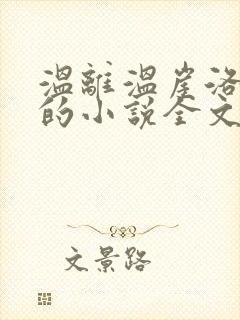 溫離溫崖洛
的小說全文
文景路